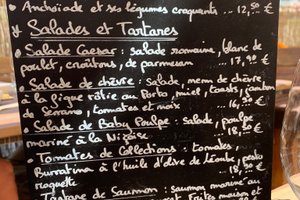 • Anchoïade et ses légumes croquants ... 12,50 €
Salades et Tartares
• Salade Caesar : Salade romaine, blanc de
poulet, croûtons, de parmesan ... 17,90 €
• Salade de chèvre : Salade, mem de chèvre,
à la figue rôtie au Porto, miel, toasts, jambon
de Serrano, tomates et noix ... 16,90 €
• Salade de Baby Poulpe : Salade, poulpe
mariné à la Niçoise ... 18,90 €
• Tomates de Collections : tomates
Burratina à l'huile d'olive de pesto
roquette
Tartare de Saumon : saumon mariné au
maison et